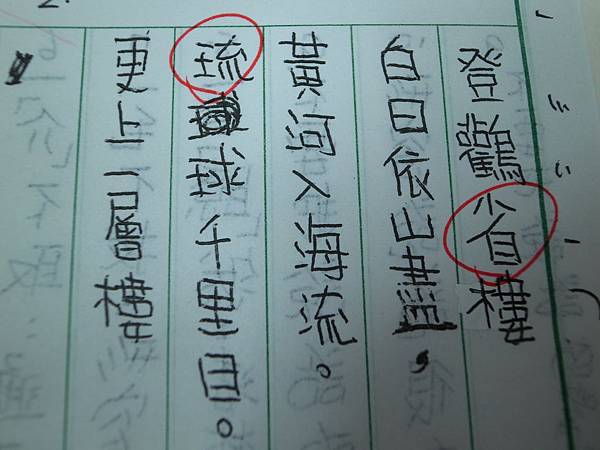 登鸛樓
白日依山盡，
黃河入海流。
千里目。
更上一層樓